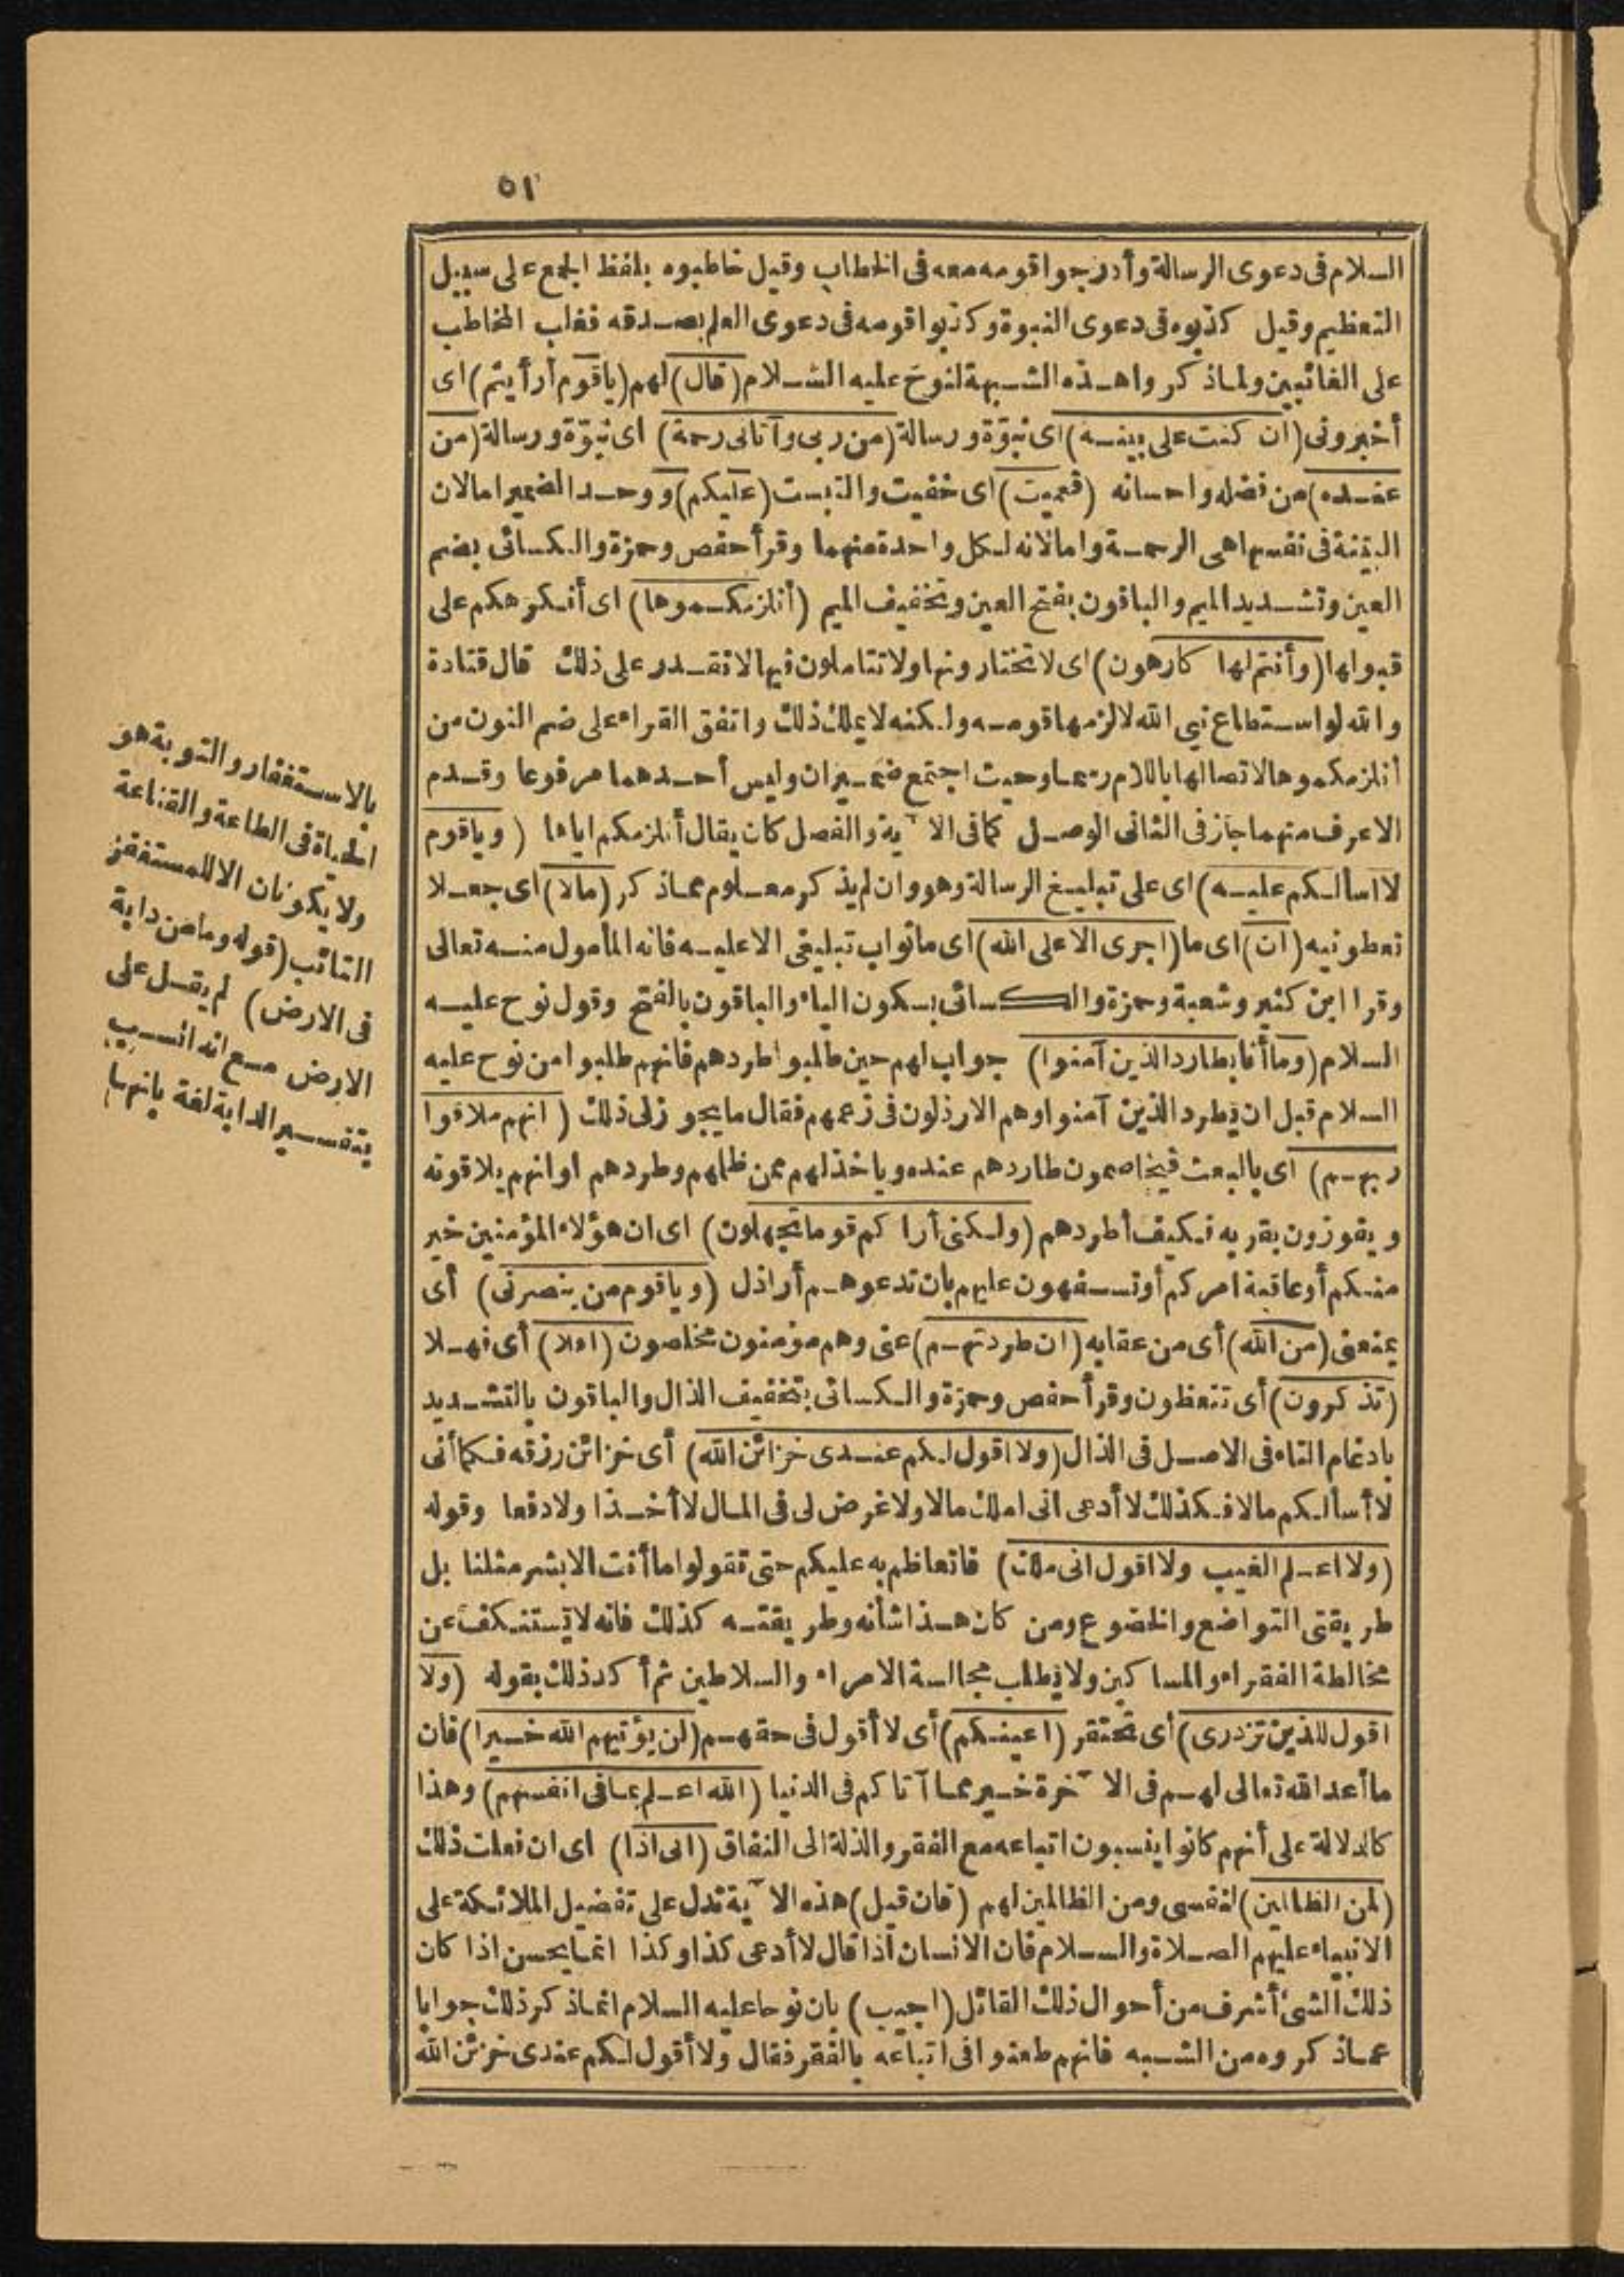 ٥١
السلام فى دعوى الرسالة وأدرجوا قومه معه فى الخطاب وقيل خاطبوه بلفظ الجمع على سبيل
التعظيم وقيل كذبوه فى دعوى النبوة وكذبوا قومه فى دعوى العلم بصدقه فغلب المخاطب
على الغائبين ولما ذكروا هذه الشبهة لنوح عليه السلام (قال) لهم (ياقوم أرأيتم) اى
أخبرونى (ان كنت على بينة) اى نبوّة ورسالة (من ربى وآتانى رحمة) اى نبوّة ورسالة (من
عنده) من فضله واحسانه (فعميت) اى خفيت والتبست (عليكم) ووحد الضمير اما لان
البينة فى نفسها هى الرحمة واما لانه لكل واحدة منهما وقرأ حفص وحمزة والكسائى بضم
العين وتشديد الميم والباقون بفتح العين وتخفيف الميم (أنلزمكموها) اى أنكرهكم على
قبولها (وأنتم لها كارهون) اى لا تختارونها ولا تتاملون فيها لا نقدر على ذلك قال قتادة
والله لو استطاع نبى الله لالزمها قومه ولكنه لا يملك ذلك واتفق القراء على ضم النون من
أنلزمكموها لاتصالها باللام رسما وحيث اجتمع ضميران وليس أحدهما مرفوعا وقدم
الاعرف منهما جاز فى الثانى الوصل كما فى الآية والفصل كان يقال أنلزمكم اياها (وياقوم
لا اسألكم عليه) اى على تبليغ الرسالة وهو وان لم يذكر معلوم مما ذكر (مالا) اى جعلا
تعطونيه (ان) اى ما (اجرى الا على الله) اى ما ثواب تبليغى الا عليه فانه المأمول منه تعالى
وقرا ابن كثير وشعبة وحمزة والكسائى بسكون الياء والباقون بالفتح وقول نوح عليه
السلام (وما أنا بطارد الذين آمنوا) جواب لهم حين طالبوا طردهم فانهم طلبوا من نوح عليه
السلام قبل ان يطرد الذين آمنوا وهم الارذلون فى زعمهم فقال ما يجوز لى ذلك (انهم ملاقوا
ربهم) اى بالبعث فيخاصمون طاردهم عنده وياخذ لهم ممن ظلمهم وطردهم او انهم يلاقونه
ويفوزون بقربه فكيف أطردهم (ولكنى أراكم قوما تجهلون) اى ان هؤلاء المؤمنين خير
منكم أو عاقبة امركم أو تسفهون عليهم بان تدعوهم أراذل (وياقوم من ينصرنى) أى
يمنعنى (من الله) أى من عقابه (ان طردتهم) عنى وهم مؤمنون مخلصون (افلا) أى فهلا
(تذكرون) أى تتعظون وقرأ حفص وحمزة والكسائى بتخفيف الذال والباقون بالتشديد
بادغام التاء فى الاصل فى الذال (ولا اقول لكم عندى خزائن الله) أى خزائن رزقه فكما أنى
لا أسألكم مالا فكذلك لا أدعى انى املك مالا ولا غرض لى فى المال لا أخذا ولا دفعا وقوله
(ولا اعلم الغيب ولا اقول انى ملك) فاتعاظم به عليكم حتى تقولوا ما أنت الا بشر مثلنا بل
طريقتى التواضع والخضوع ومن كان هذا شأنه وطريقته كذلك فانه لا يستنكف عن
مخالطة الفقراء والمساكين ولا يطلب مجالسة الامراء والسلاطين ثم أكد ذلك بقوله (ولا
اقول للذين تزدرى) أى تحتقر (اعينكم) أى لا أقول فى حقهم (لن يؤتيهم الله خيرا) فان
ما أعد الله تعالى لهم فى الآخرة خير مما آتاكم فى الدنيا (الله اعلم بما فى انفسهم) وهذا
كالدلالة على أنهم كانوا ينسبون اتباعه مع الفقر والذلة الى النفاق (انى اذا) اى ان فعلت ذلك
(لمن الظالمين) لنفسى ومن الظالمين لهم (فان قيل) هذه الآية تدل على تفضيل الملائكة على
الانبياء عليهم الصلاة والسلام فان الانسان اذا قال لا أدعى كذا وكذا انما يحسن اذا كان
ذلك الشئ أشرف من أحوال ذلك القائل (اجيب) بان نوحا عليه السلام انما ذكر ذلك جوابا
عما ذكروه من الشبه فانهم طعنوا فى اتباعه بالفقر فقال ولا أقول لكم عندى خزئن الله
بالاستغفار والتوبة هو
الحياة فى الطاعة والقناعة
ولا يكونان الا للمستغفر
التائب (قوله وما من دابة
فى الارض) لم يقل على
الارض مع انه انسب
بتفسير الدابة لغة بانها